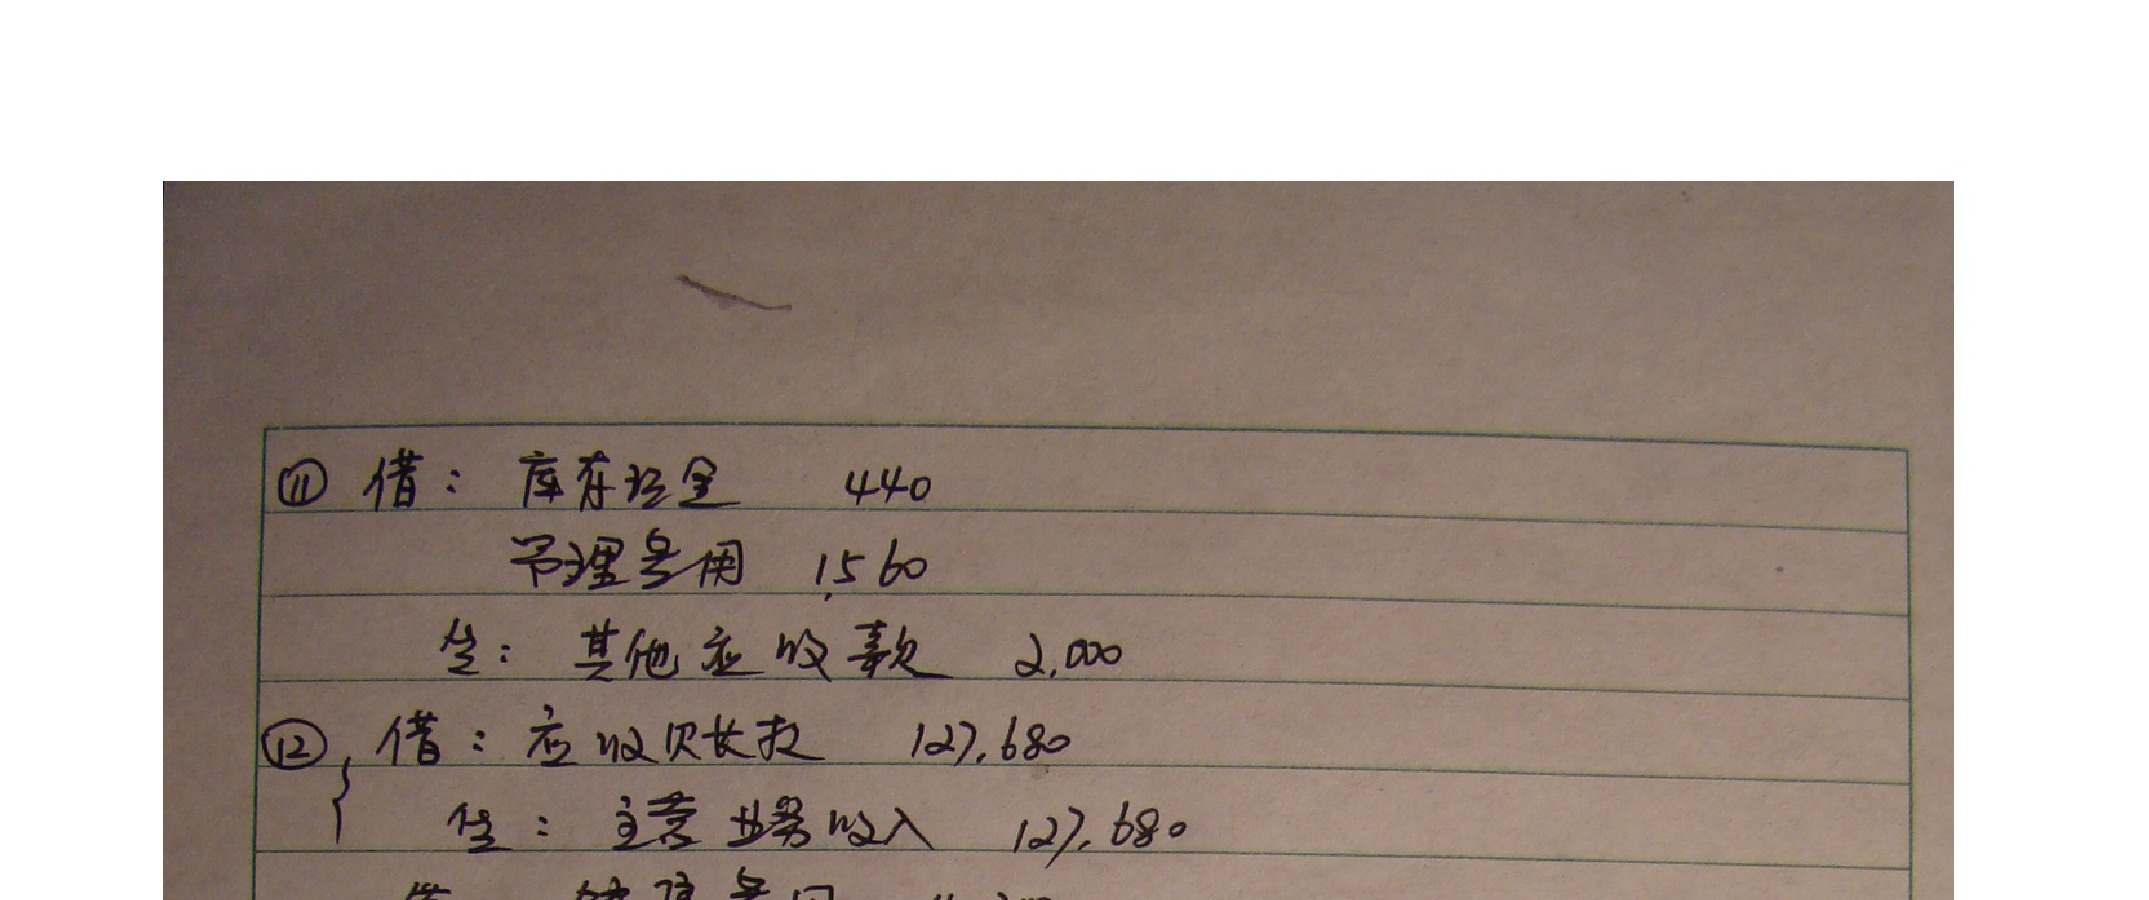 ⑪ 借：库存现金 440
管理费用 1,560
贷：其他应收款 2,000
⑫ 借：应收账款 127,680
贷：主营业务收入 127,680